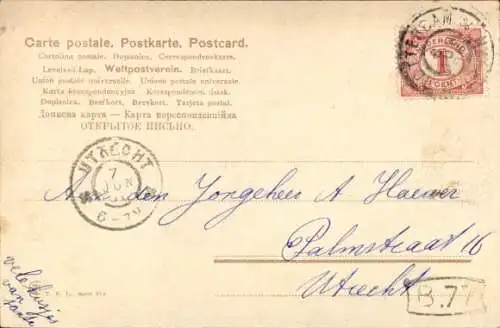 Carte postale. Postkarte. Postcard.
Cartolina postale. Dopisnica. Correspondenzkarte.
Levelezö Lap. Weltpostverein. Briefkaart.
Union postale universelle. Unione postale universale.
Karta korespondencyjna. Korespondenční lístek.
Dopisnica. Brefkort. Brevkort. Tarjeta postal.
Дописна карта — Карта корреспонденційна
ОТКРЫТОЕ ПИСЬМО.
1
CENT
UTRECHT
7
JUN
Aan den Jongeheer A
Palmstraat 16
Utrecht
B.77
vele kusjes
van
tante